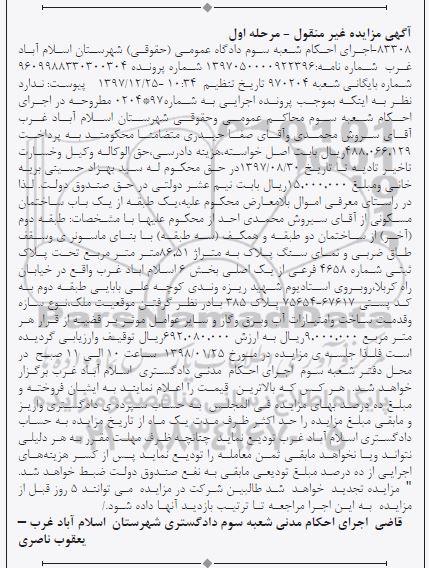 آگهی مزایده غیر منقول - مرحله اول
۸۳۳۰۸-اجرای احکام شعبه سوم دادگاه عمومی (حقوقی) شهرستان اسلام آباد
غرب شماره نامه:۱۳۹۷۰۵۰۰۰۰۹۲۲۳۹۶ شماره پرونده ۹۶۰۹۹۸۸۳۳۰۳۰۰۳۰۴
شماره بایگانی شعبه ۹۷۰۲۰۴ تاریخ تنظیم ۱۰:۳۴ -۱۳۹۷/۱۲/۲۵ پیوست: ندارد
نظر به اینکه بموجب پرونده اجرایی به شماره۰۲۰۴*۹۷ مطروحه در اجرای
احکام شعبه سوم محاکم عمومی وحقوقی شهرستان اسلام آباد غرب
آقای سروش محمدی وآقای صفا حیدری متضامنا محکومتند به پرداخت
۴۸۸،۰۶۶،۱۲۹ریال بابت اصل خواسته،هزینه دادرسی،حق الوکاله وکیل وخسارت
تاخیر تادیه تا تاریخ ۱۳۹۷/۰۸/۳۰در حق محکوم له سید بهزاد حسینی بریه
خانی ومبلغ ۱۵،۰۰۰،۰۰۰ریال بابت نیم عشر دولتی در حق صندوق دولت. لذا
در راستای معرفی اموال بلامعارض محکوم علیه،یک طبقه از یک باب ساختمان
مسکونی از آقای سیروش محمدی احد از محکوم علیها با مشخصات: طبقه دوم
(آخر) از ساختمان دو طبقه و همکف (سه طبقه) با بنای ماسونری وسقف
طاق ضربی و نمای سنگ پلاک به متراژ ۸۶،۵۱متر متر مربع تحت پلاک
ثبتی شماره ۴۶۵۸ فرعی از یک اصلی بخش ۶ اسلام آباد غرب واقع در خیابان
راه کربلا،روبروی استادیوم شهید ریزه وندی کوچه علی بابایی طبقه دوم به
کد پستی ۶۷۶۱۷-۷۵۶۵۴ پلاک ۳۸۵ بادر نظر گرفتن موقعیت ملک،نوع سازه
وقدمت ساخت وامتیازات آب وبرق وگاز و سایر عوامل موثر بر قضیه از قرار هر
متر مربع ۹،۰۰۰،۰۰۰ریال به ارزش ۶۹۲،۰۸۰،۰۰۰ریال توقیف وارزیابی گردیده
است فلذا جلسه ی مزایده در مورخ ۱۳۹۸/۰۱/۲۵ ساعت ۱۰ الی ۱۱ صبح در
محل دفتر شعبه سوم اجرای احکام مدنی دادگستری اسلام آباد غرب برگزار
خواهد شد. هر کس که بالاترین قیمت را اعلام نمایند به ایشان فروخته و
مبلغ ده درصد بهای مزایده فی المجلس به حساب سپرده ی دادگستری واریز
و مابقی مبلغ مزایده را حد اکثر ظرف مدت یک ماه از تاریخ مزایده به حساب
دادگستری اسلام آباد غرب تودیع نماید چنانچه ظرف مهلت مقرر به هر دلیلی
نتواند ویا نخواهد مابقی ثمن معامله را تودیع نماید پس از کسر هزینه‌های
اجرایی از ده درصد مبلغ تودیعی مابقی به نفع صندوق دولت ضبط خواهد شد.
" مزایده تجدید خواهد شد طالبین شرکت در مزایده می توانند ۵ روز قبل از
مزایده به این اجرا مراجعه تا ترتیب بازدید آنها داده شود./
قاضی اجرای احکام مدنی شعبه سوم دادگستری شهرستان اسلام آباد غرب –
یعقوب ناصری